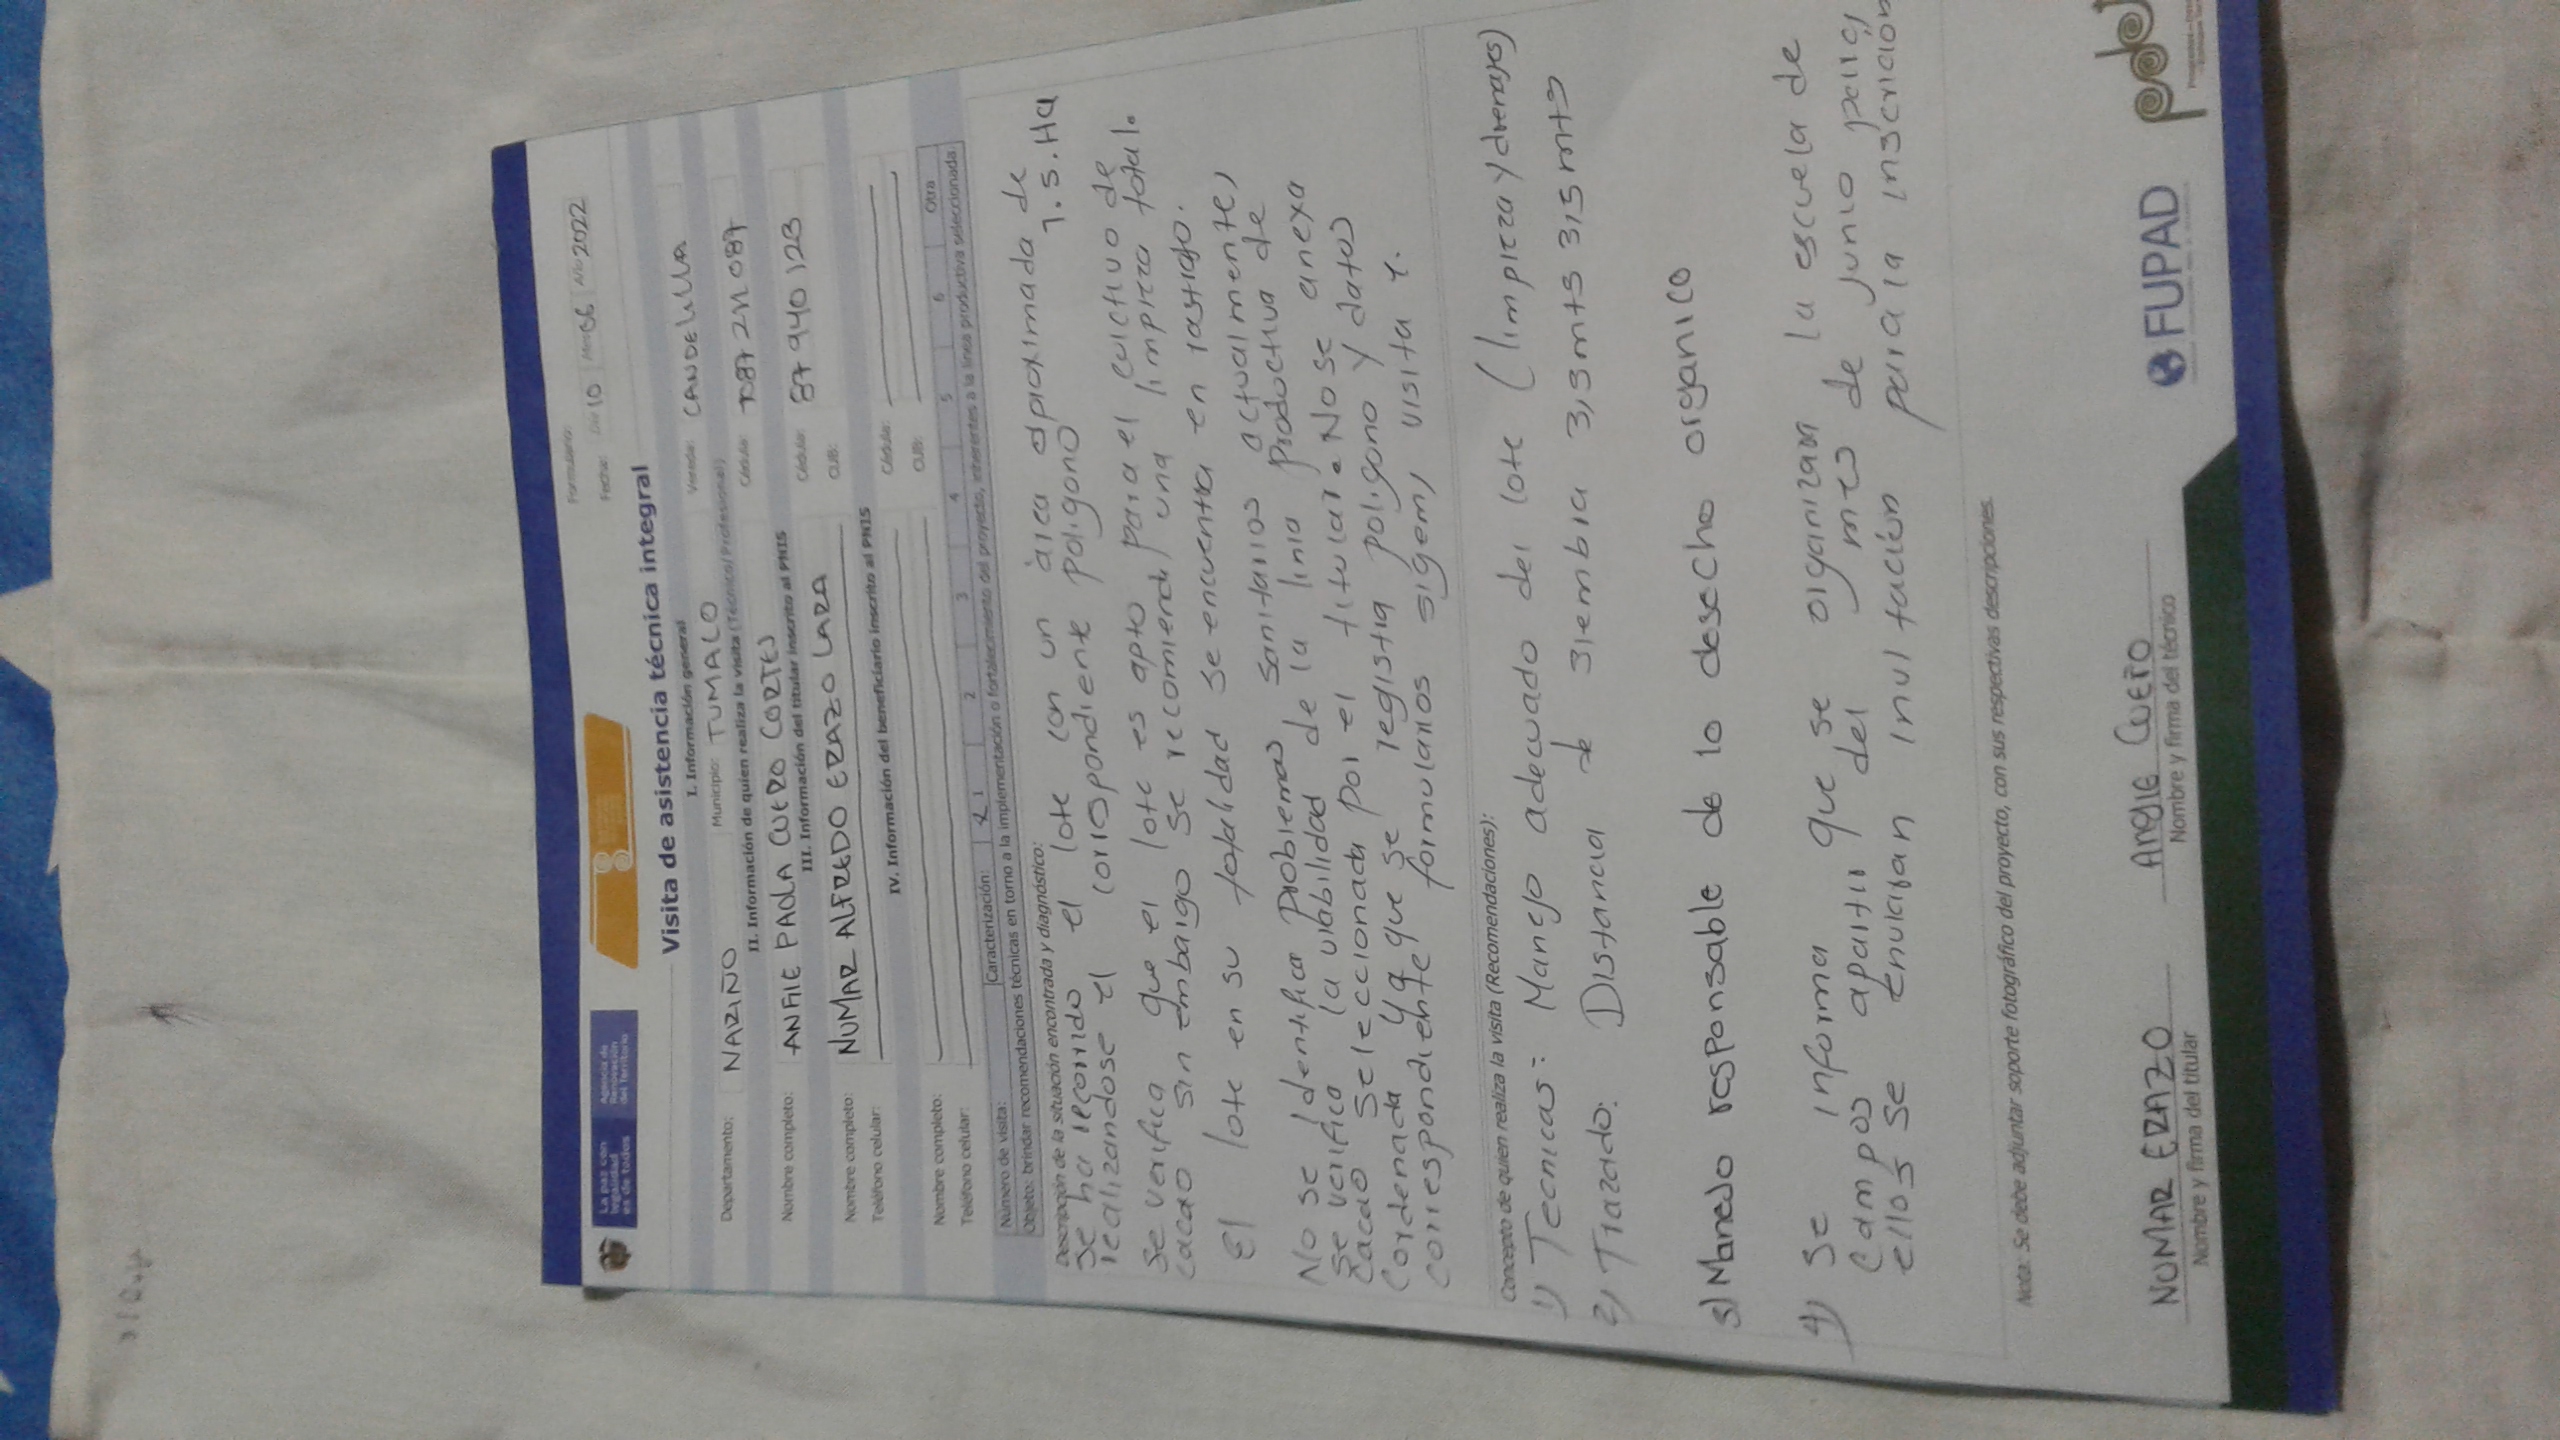 La paz con
legalidad
es de todos
Agencia de
Renovación
del Territorio
Formulario:
Fecha: Día 10 Mes 06 Año 2022
Visita de asistencia técnica integral
I. Información general
Departamento: NARIÑO Municipio: TUMACO Vereda: CANDELILLA
II. Información de quien realiza la visita (Técnico/Profesional)
Nombre completo: PAOLA CUERO CORTES Cédula: 1087211087
III. Información del titular inscrito al PNIS
Nombre completo: NUMAR ALFREDO ERAZO LARA Cédula: 87940123
Teléfono celular: CUB:
IV. Información del beneficiario inscrito al PNIS
Nombre completo: Cédula:
Teléfono celular: CUB:
Número de visita: Caracterización: X 1 2 3 4 5 6 Otra
Objeto: brindar recomendaciones técnicas en torno a la implementación o fortalecimiento del proyecto, inherentes a la línea productiva seleccionada.
Descripción de la situación encontrada y diagnóstico:
Se ha recorrido el lote con un área aproximada de
realizandose el correspondiente poligono 1.5.Ha
Se verifica que el lote es apto para el cultivo de
cacao sin embargo se recomienda una limpieza total.
El lote en su totalidad se encuentra en rastrojo.
No se identifica Problemas sanitarios actualmente,
Se verifica la viabilidad de la linia productiva de
cacao seleccionada por el titular. No se anexa
Cordenada ya que se registra poligono y datos
correspondiente formularios sigem, visita 1.
Concepto de quien realiza la visita (Recomendaciones):
1) Tecnicas: Manejo adecuado del lote (limpieza y drenajes)
2) Trazado: Distancia de siembra 3,5 mts 3,5 mts
3) Manedo responsable de lo desecho organico
4) Se informa que se organizara la escuela de
Campos apartir del mes de junio para
ellos se enviaran invitación para la inscricion
Nota: Se debe adjuntar soporte fotográfico del proyecto, con sus respectivas descripciones.
NUMAR ERAZO ANGIE CUERO
Nombre y firma del titular Nombre y firma del técnico
FUPAD